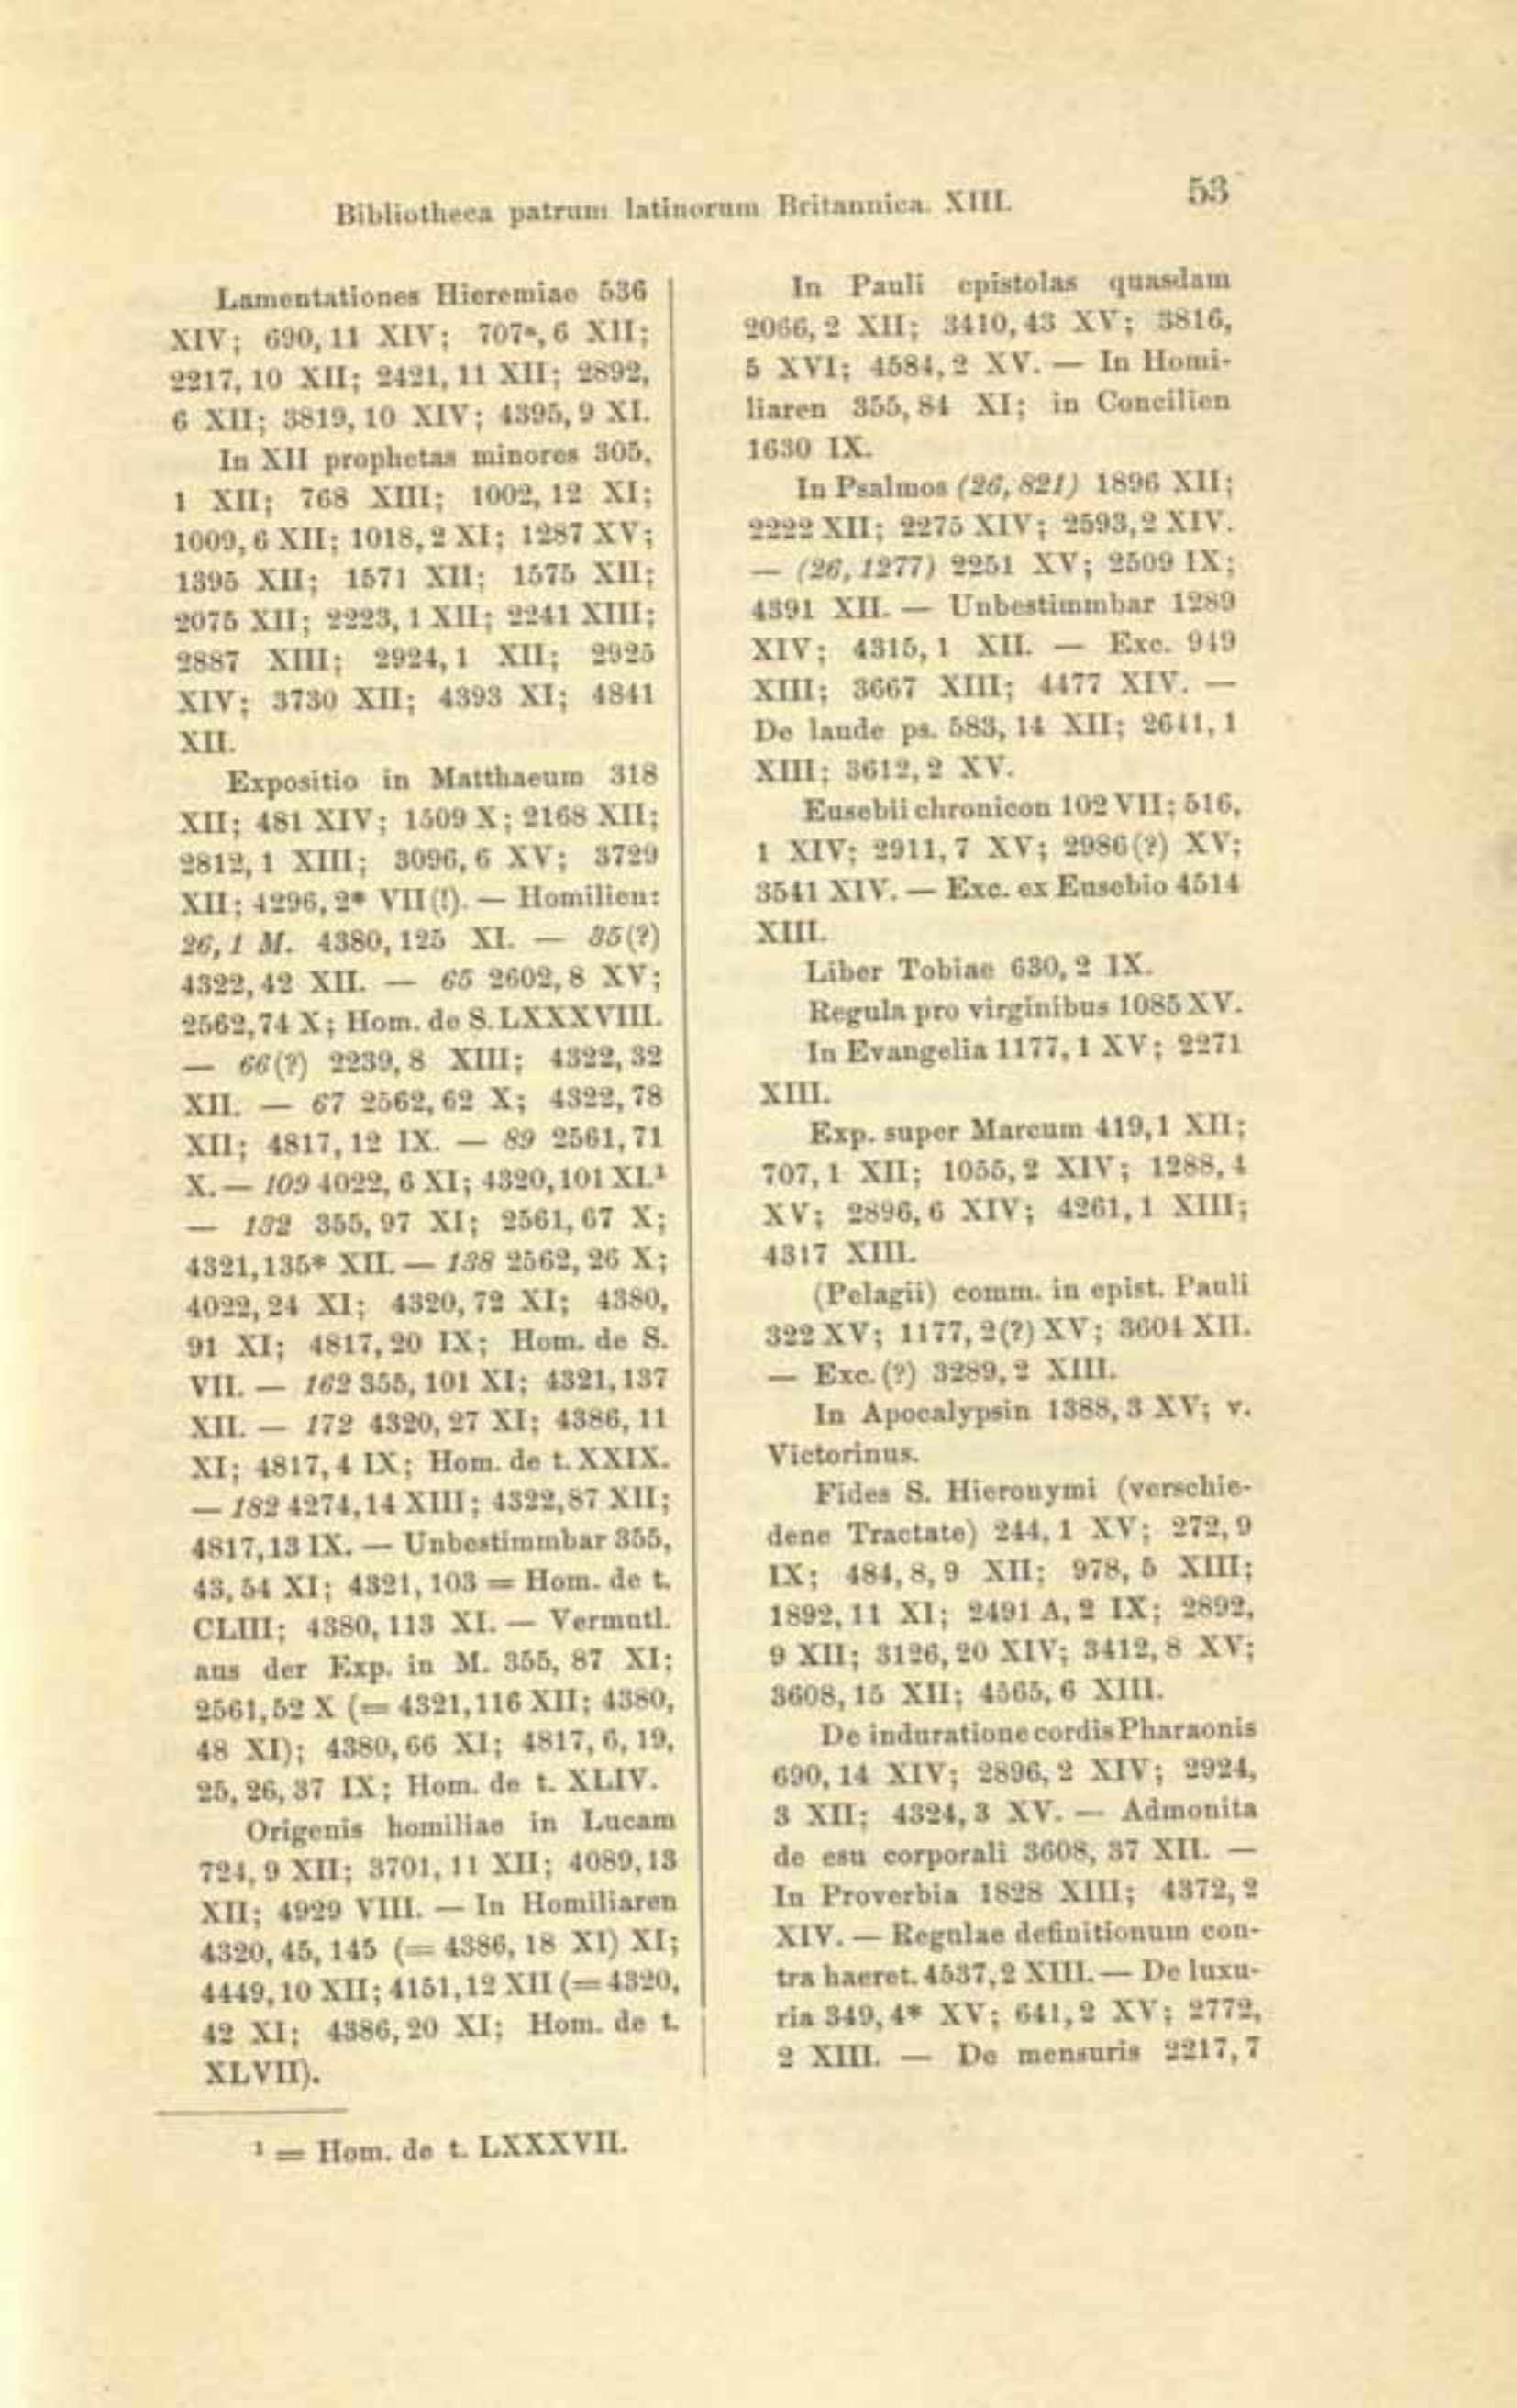 Bibliotheca patrum latinorum Britannica. XIII. 53
Lamentationes Hieremiae 536
XIV; 690, 11 XIV; 707ᵃ, 6 XII;
2217, 10 XII; 2421, 11 XII; 2892,
6 XII; 3819, 10 XIV; 4395, 9 XI.
In XII prophetas minores 305,
1 XII; 768 XIII; 1002, 12 XI;
1009, 6 XII; 1018, 2 XI; 1287 XV;
1395 XII; 1571 XII; 1575 XII;
2075 XII; 2223, 1 XII; 2241 XIII;
2887 XIII; 2924, 1 XII; 2925
XIV; 3730 XII; 4393 XI; 4841
XII.
Expositio in Matthaeum 318
XII; 481 XIV; 1509 X; 2168 XII;
2812, 1 XIII; 3096, 6 XV; 3729
XII; 4296, 2* VII (!). — Homilien:
26, 1 M. 4380, 125 XI. — 35(?)
4322, 42 XII. — 65 2602, 8 XV;
2562, 74 X; Hom. de S. LXXXVIII.
— 66(?) 2239, 8 XIII; 4322, 32
XII. — 67 2562, 62 X; 4322, 78
XII; 4817, 12 IX. — 89 2561, 71
X. — 109 4022, 6 XI; 4320, 101 XI.¹
— 132 355, 97 XI; 2561, 67 X;
4321, 135* XII. — 138 2562, 26 X;
4022, 24 XI; 4320, 72 XI; 4380,
91 XI; 4817, 20 IX; Hom. de S.
VII. — 162 355, 101 XI; 4321, 137
XII. — 172 4320, 27 XI; 4386, 11
XI; 4817, 4 IX; Hom. de t. XXIX.
— 182 4274, 14 XIII; 4322, 87 XII;
4817, 13 IX. — Unbestimmbar 355,
43, 54 XI; 4321, 103 = Hom. de t.
CLIII; 4380, 113 XI. — Vermutl.
aus der Exp. in M. 355, 87 XI;
2561, 52 X (= 4321, 116 XII; 4380,
48 XI); 4380, 66 XI; 4817, 6, 19,
25, 26, 37 IX; Hom. de t. XLIV.
Origenis homiliae in Lucam
724, 9 XII; 3701, 11 XII; 4089, 13
XII; 4929 VIII. — In Homiliaren
4320, 45, 145 (= 4386, 18 XI) XI;
4449, 10 XII; 4151, 12 XII (= 4320,
42 XI; 4386, 20 XI; Hom. de t.
XLVII).
¹ = Hom. de t. LXXXVII.
In Pauli epistolas quasdam
2066, 2 XII; 3410, 43 XV; 3816,
5 XVI; 4584, 2 XV. — In Homi-
liaren 355, 84 XI; in Concilien
1630 IX.
In Psalmos (26, 821) 1896 XII;
2222 XII; 2275 XIV; 2593, 2 XIV.
— (26, 1277) 2251 XV; 2509 IX;
4391 XII. — Unbestimmbar 1289
XIV; 4315, 1 XII. — Exc. 949
XIII; 3667 XIII; 4477 XIV. —
De laude ps. 583, 14 XII; 2641, 1
XIII; 3612, 2 XV.
Eusebii chronicon 102 VII; 516,
1 XIV; 2911, 7 XV; 2986 (?) XV;
3541 XIV. — Exc. ex Eusebio 4514
XIII.
Liber Tobiae 630, 2 IX.
Regula pro virginibus 1085 XV.
In Evangelia 1177, 1 XV; 2271
XIII.
Exp. super Marcum 419, 1 XII;
707, 1 XII; 1055, 2 XIV; 1288, 4
XV; 2896, 6 XIV; 4261, 1 XIII;
4317 XIII.
(Pelagii) comm. in epist. Pauli
322 XV; 1177, 2(?) XV; 3604 XII.
— Exc. (?) 3289, 2 XIII.
In Apocalypsin 1388, 3 XV; v.
Victorinus.
Fides S. Hieronymi (verschie-
dene Tractate) 244, 1 XV; 272, 9
IX; 484, 8, 9 XII; 978, 5 XIII;
1892, 11 XI; 2491 A, 2 IX; 2892,
9 XII; 3126, 20 XIV; 3412, 8 XV;
3608, 15 XII; 4565, 6 XIII.
De induratione cordis Pharaonis
690, 14 XIV; 2896, 2 XIV; 2924,
3 XII; 4324, 3 XV. — Admonita
de esu corporali 3608, 37 XII. —
In Proverbia 1828 XIII; 4372, 2
XIV. — Regulae definitionum con-
tra haeret. 4537, 2 XIII. — De luxu-
ria 349, 4* XV; 641, 2 XV; 2772,
2 XIII. — De mensuris 2217, 7